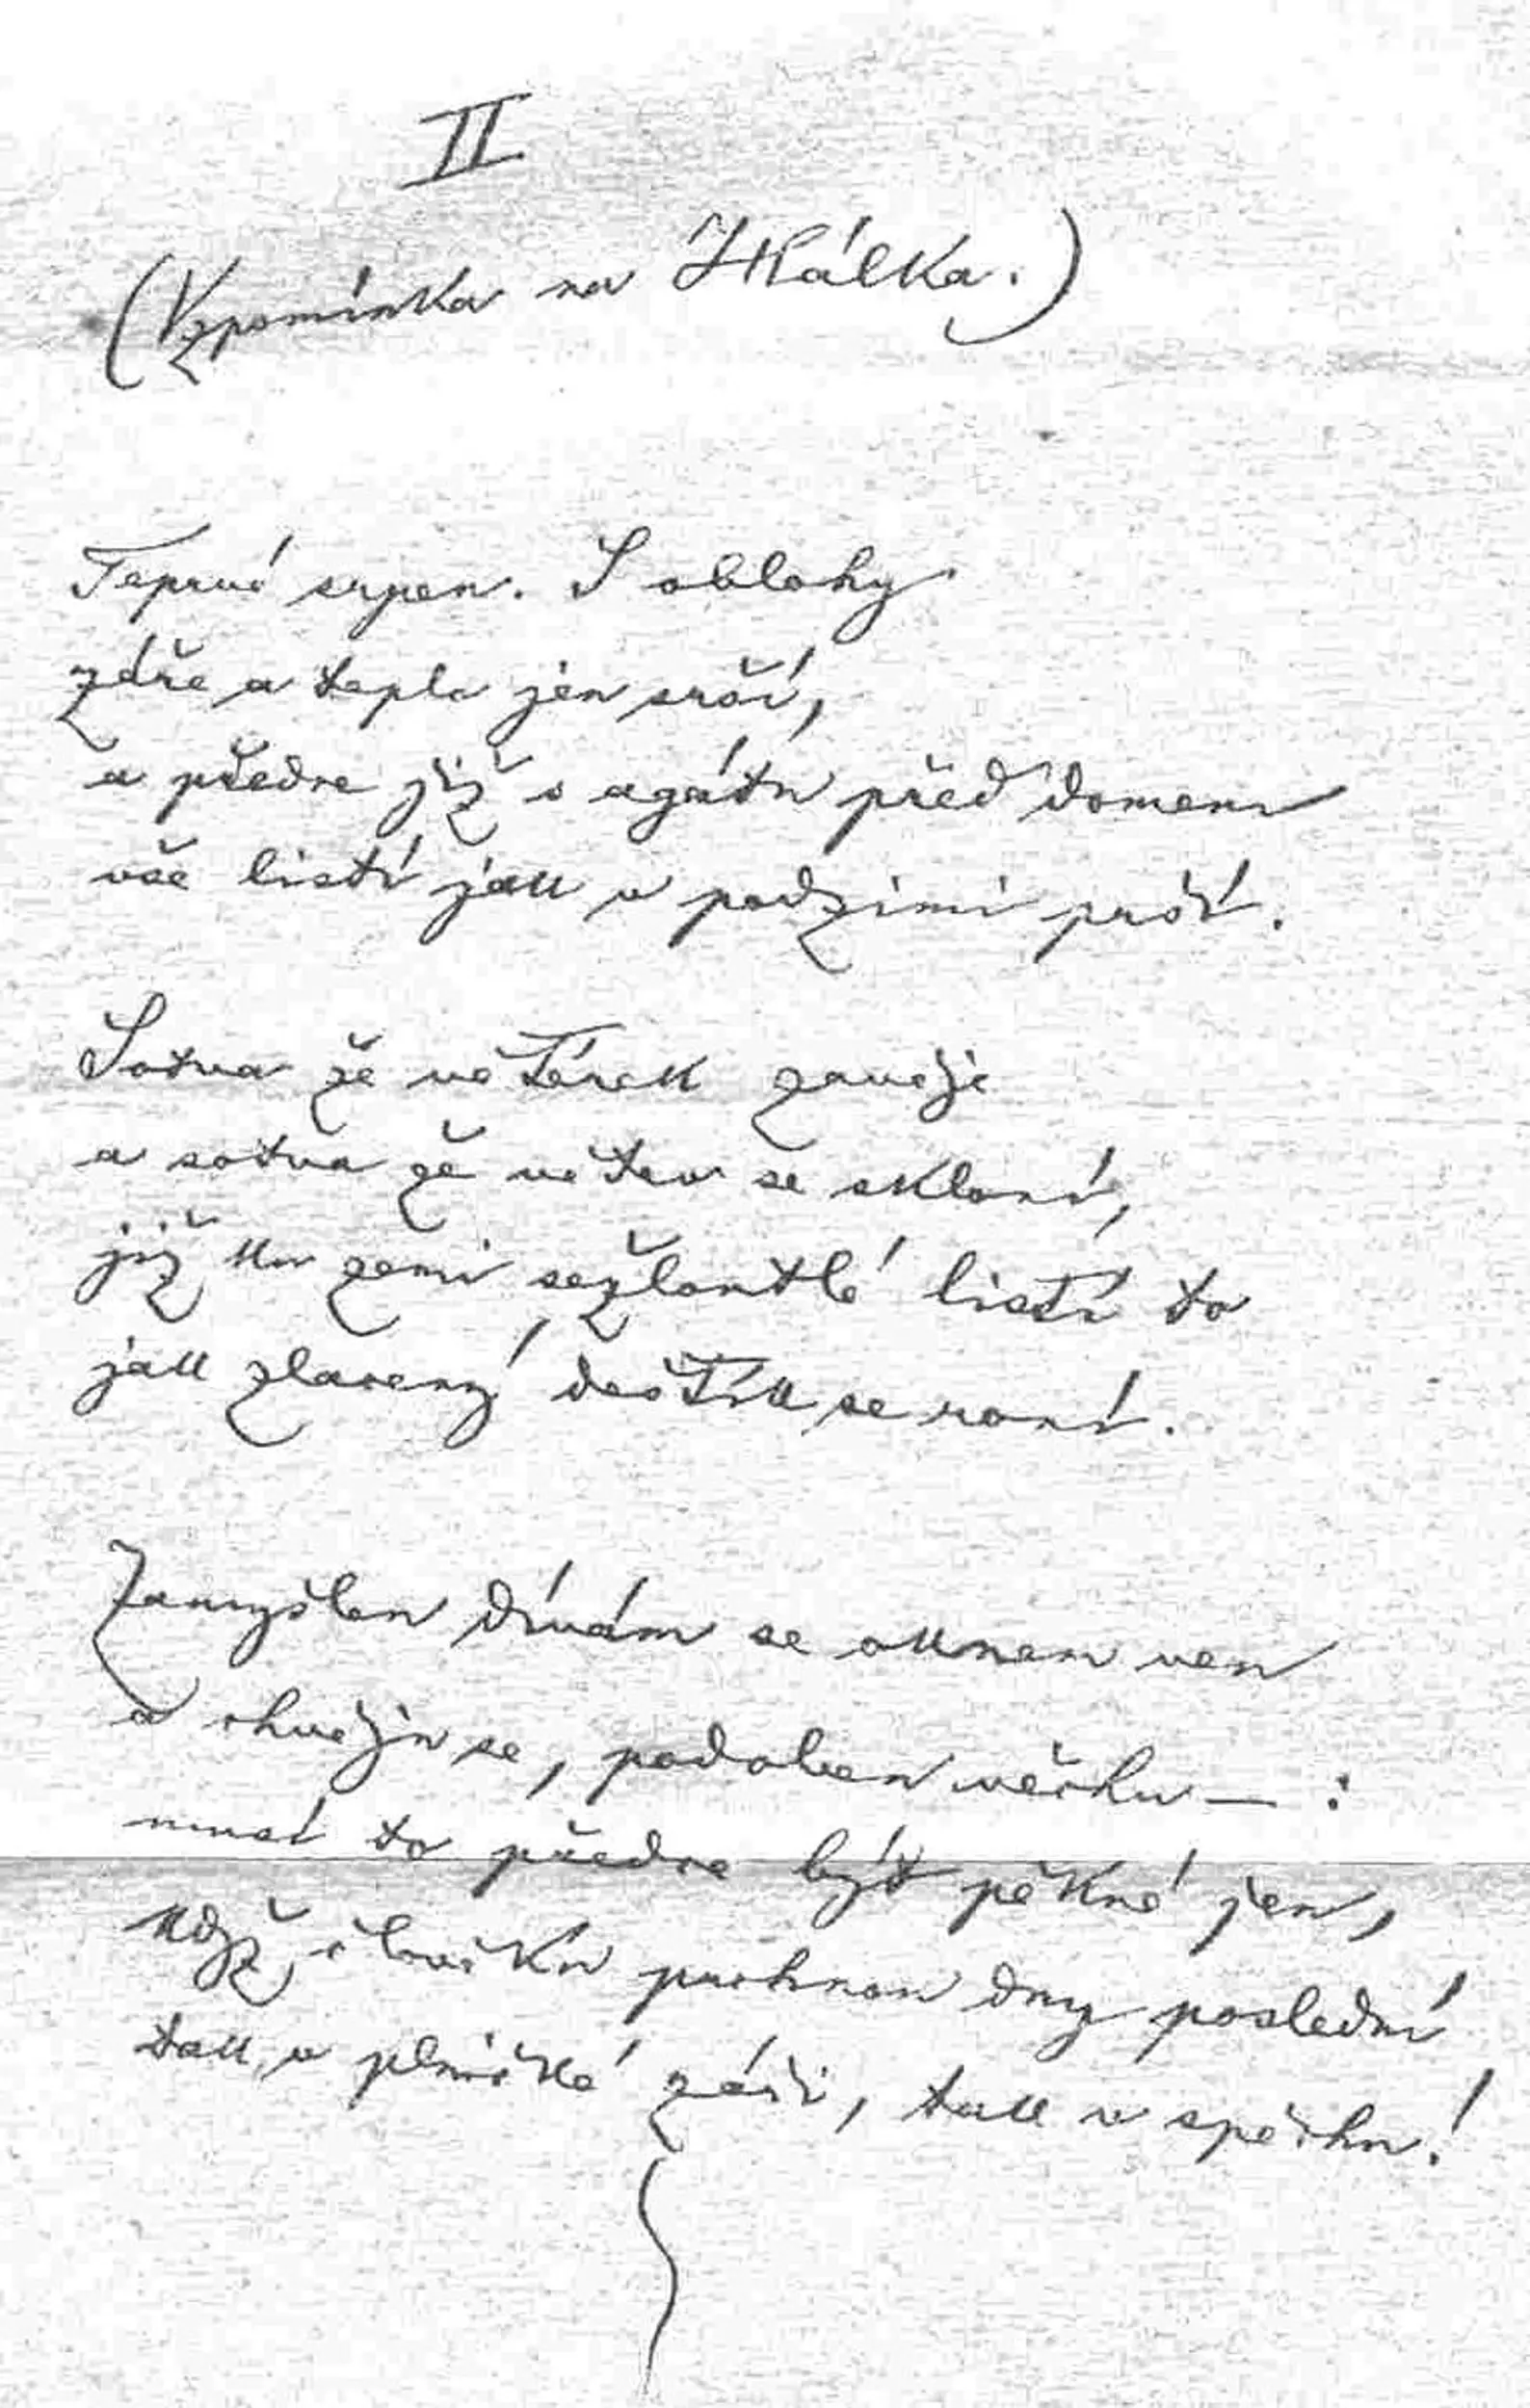 II
(Vzpomínka na Hálka.)
Teprvé srpen. S oblohy
záře a tepla jen srší,
a přece již s agátu před domem
vše listí jak v podzimi prší.
Sotva že větérek zavěje
a sotva že větev se skloní,
již ku zemi sežloutlé listí to
jak zlacený deštík se roní.
Zamyšlen dívám se oknem ven
a chvěju se, podoben věchu — :
musí to přece být pěkné jen,
když človíčku prchnou dny poslední
tak v plničké záři, tak v spěchu!